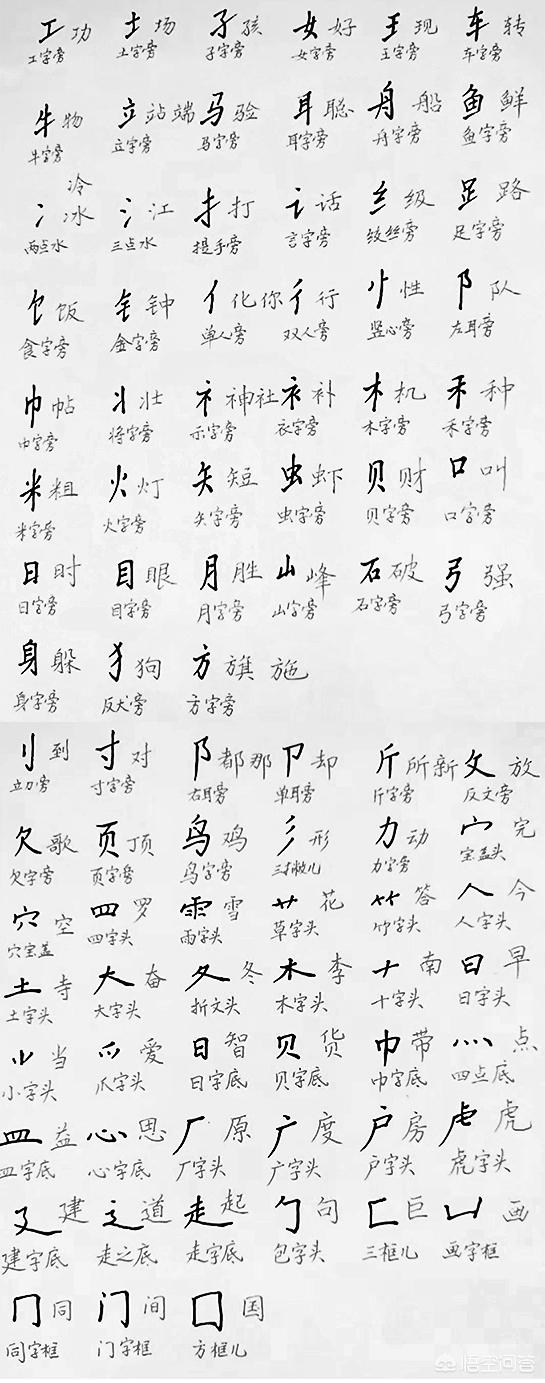 工 功 土 场 子 孩 女 好 王 现 车 转
工字旁 土字旁 子字旁 女字旁 王字旁 车字旁
牛 物 立 站 端 马 验 耳 聪 舟 船 鱼 鲜
牛字旁 立字旁 马字旁 耳字旁 舟字旁 鱼字旁
冷
冫 冰 氵 江 扌 打 讠 话 纟 级 𧾷 路
两点水 三点水 提手旁 言字旁 绞丝旁 足字旁
饣 饭 钅 钟 亻 化 你 彳 行 忄 性 阝 队
食字旁 金字旁 单人旁 双人旁 竖心旁 左耳旁
巾 帖 丬 壮 礻 神 社 衤 补 木 机 禾 种
巾字旁 将字旁 示字旁 衣字旁 木字旁 禾字旁
米 粗 火 灯 矢 短 虫 虾 贝 财 口 叫
米字旁 火字旁 矢字旁 虫字旁 贝字旁 口字旁
日 时 目 眼 月 胜 山 峰 石 破 弓 强
日字旁 目字旁 月字旁 山字旁 石字旁 弓字旁
身 躲 犭 狗 方 旗 施
身字旁 反犬旁 方字旁
刂 到 寸 对 阝 都 那 卩 却 斤 所 新 攵 放
立刀旁 寸字旁 右耳旁 单耳旁 斤字旁 反文旁
欠 歌 页 顶 鸟 鸡 彡 形 力 动 宀 完
欠字旁 页字旁 鸟字旁 三撇儿 力字旁 宝盖头
穴 空 四 罗 雨 雪 艹 花 ⺮ 答 人 今
穴宝盖 四字头 雨字头 草字头 竹字头 人字头
土 寺 大 奋 夂 冬 木 李 十 南 日 早
土字头 大字头 折文头 木字头 十字头 日字头
⺌ 当 爫 爱 日 智 贝 货 巾 带 灬 点
小字头 爪字头 日字底 贝字底 巾字底 四点底
皿 益 心 思 厂 原 广 度 户 房 虍 虎
皿字底 心字底 厂字头 广字头 户字头 虎字头
廴 建 辶 道 走 起 勹 句 匚 巨 凵 画
建字底 走之底 走字底 包字头 三框儿 画字框
冂 同 门 间 囗 国
同字框 门字框 方框儿
悟空问答